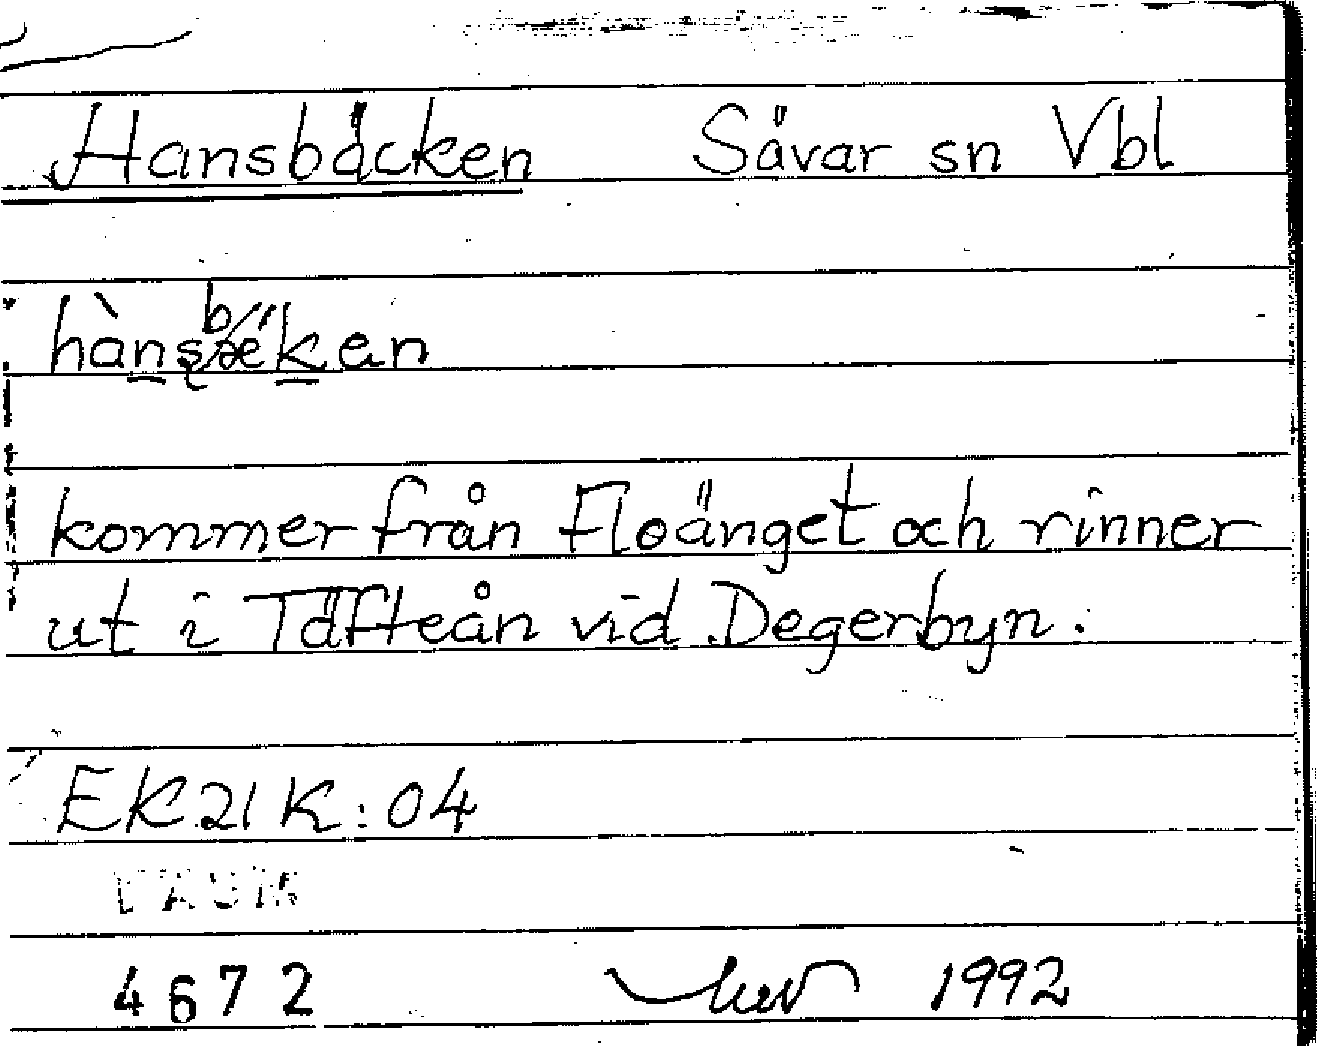 Hansbäcken Sävar sn Vbl
hànsbæ̋ken
kommer från Floänget och rinner
ut i Täfteån vid Degerbyn.
EK 21 K:04
4672 1992